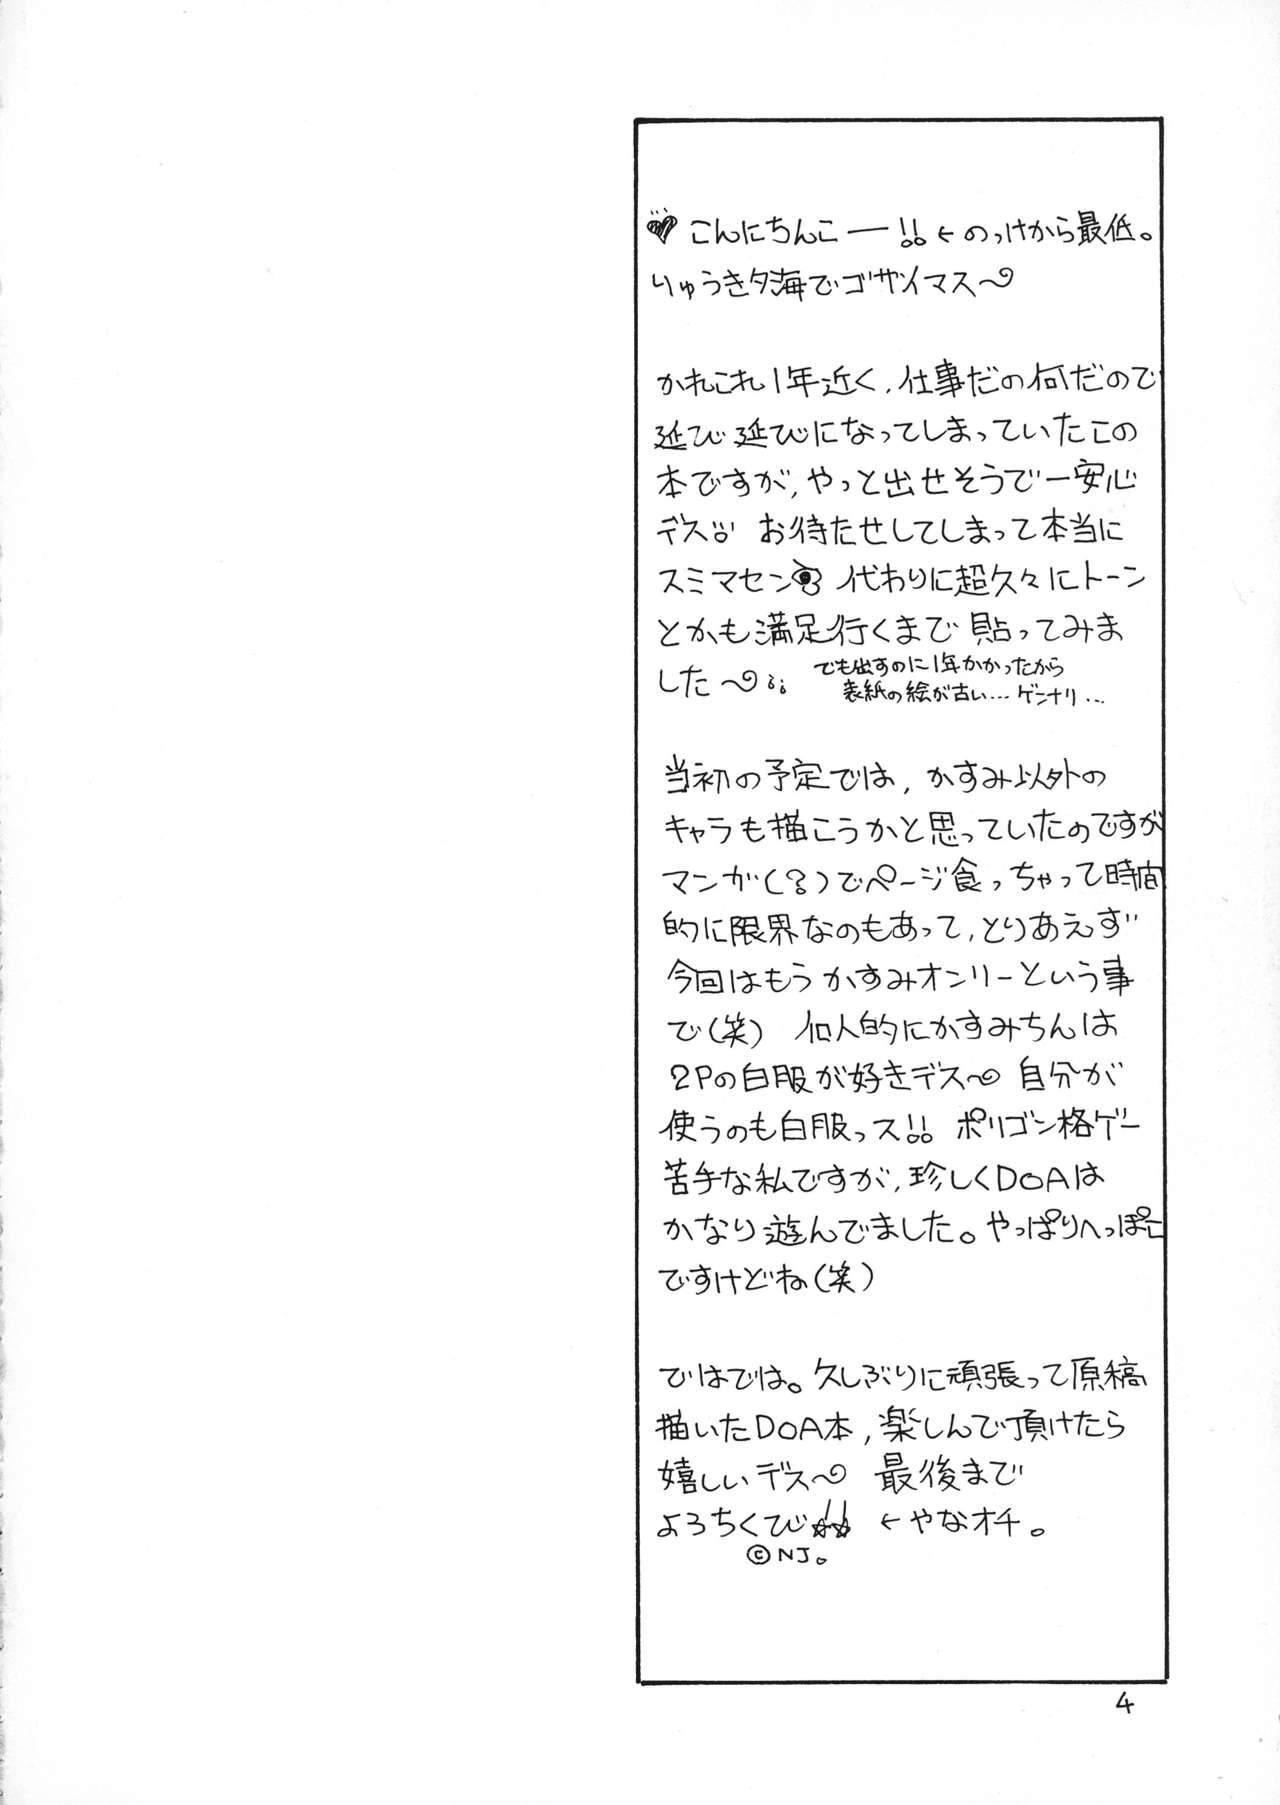 ♥ こんにちんこー!! ←のっけから最低。
りゅうき夕海でゴザイマス〜
かれこれ1年近く、仕事だの何だので
延び延びになってしまっていたこの
本ですが、やっと出せそうで一安心
デス!! お待たせしてしまって本当に
スミマセン 代わりに超久々にトーン
とかも満足行くまで貼ってみま
した〜;;
でも出すのに1年かかったから
表紙の絵が古い…ゲンナリ…
当初の予定では、かすみ以外の
キャラも描こうかと思っていたのですが
マンガ(?)でページ食っちゃって時間
的に限界なのもあって、とりあえず
今回はもうかすみオンリーという事
で(笑) 個人的にかすみちんは
2Pの白服が好きデス〜 自分が
使うのも白服っス!! ポリゴン格ゲー
苦手な私ですが、珍しくDOAは
かなり遊んでました。やっぱりへっぽこ
ですけどね(笑)
ではでは。久しぶりに頑張って原稿
描いたDOA本、楽しんで頂けたら
嬉しいデス〜 最後まで
よろちくび!! ←やなオチ。
©NJ。
4